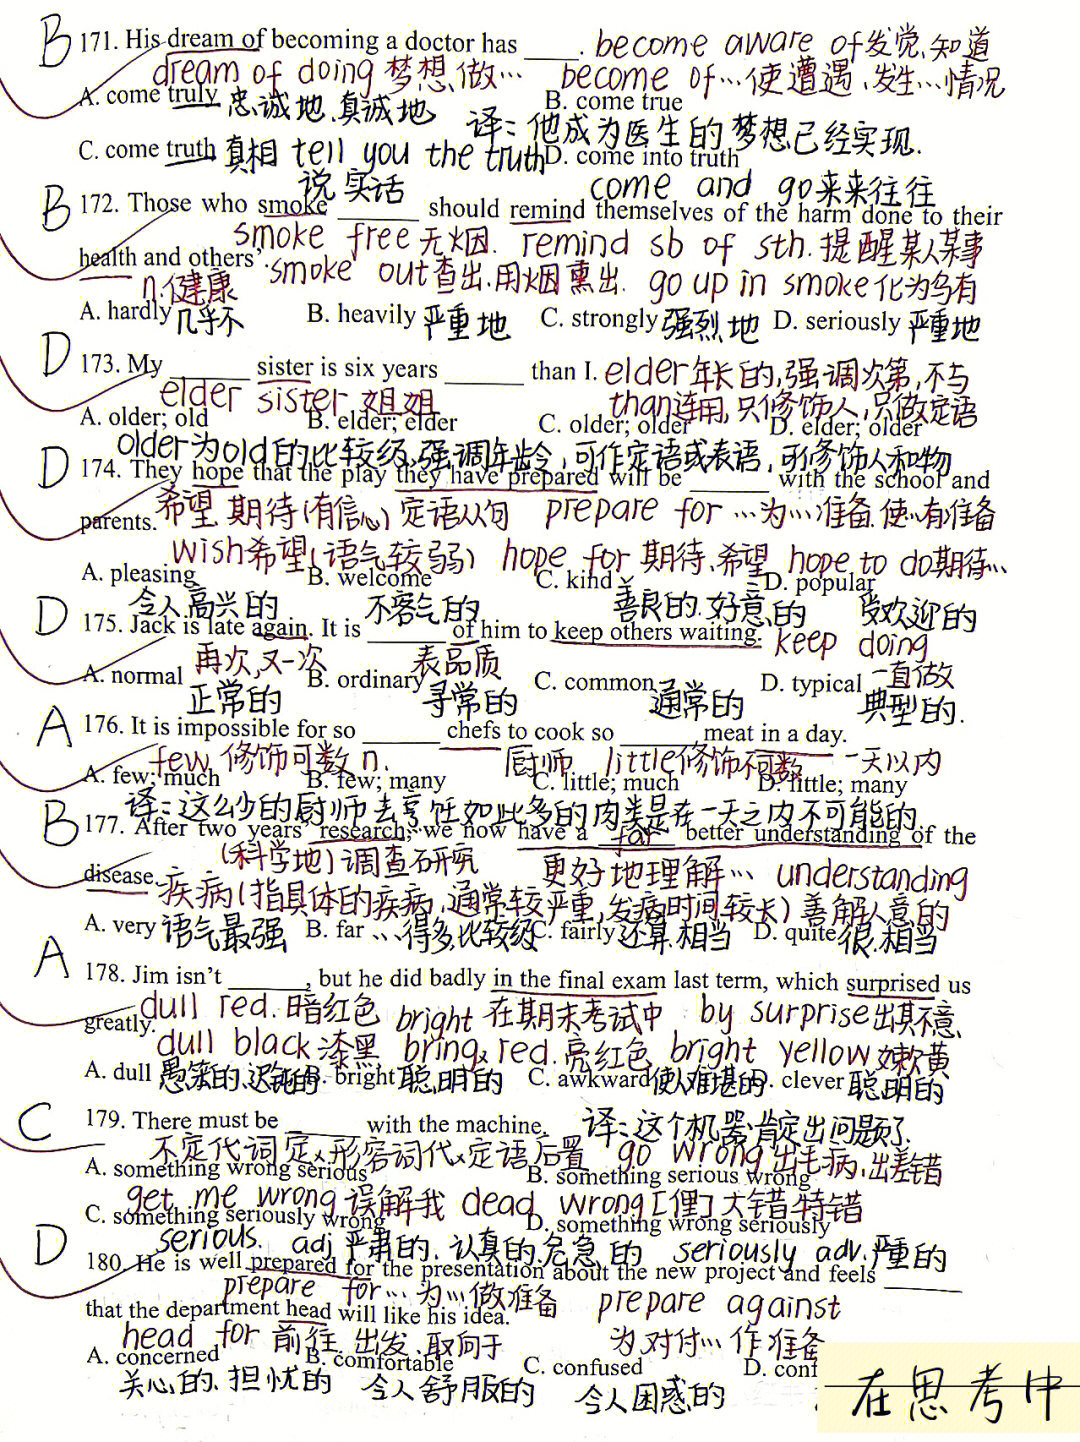 B 171. His dream of becoming a doctor has ____. become aware of 发觉、知道
dream of doing 梦想、做… become of … 使遭遇、发生…情况
A. come truly 忠诚地、真诚地 B. come true
译:他成为医生的梦想已经实现.
C. come truth 真相 tell you the truth D. come into truth
说实话 come and go 来来往往
B 172. Those who smoke ______ should remind themselves of the harm done to their
smoke free 无烟. remind sb of sth. 提醒某人某事
health and others'. smoke out 查出、用烟熏出. go up in smoke 化为乌有
n.健康
A. hardly 几乎不 B. heavily 严重地 C. strongly 强烈地 D. seriously 严重地
D 173. My ______ sister is six years ______ than I. elder 年长的,强调次第,不与
elder sister 姐姐 than连用,只修饰人,只做定语
A. older; old B. elder; elder C. older; older D. elder; older
older为old的比较级,强调年龄,可作定语或表语,可修饰人和物
D 174. They hope that the play they have prepared will be ______ with the school and
parents. 希望、期待(有信心) 定语从句 prepare for …为…准备、使…有准备
wish希望(语气较弱) hope for 期待、希望 hope to do期待…
A. pleasing B. welcome C. kind D. popular
令人高兴的 不客气的 善良的.好意的 受欢迎的
D 175. Jack is late again. It is ______ of him to keep others waiting. keep doing
再次,又一次 表品质 一直做
A. normal B. ordinary C. common D. typical
正常的 寻常的 通常的 典型的.
A 176. It is impossible for so ______ chefs to cook so ______ meat in a day.
few 修饰可数 n. 厨师 little修饰不可数 一天以内
A. few; much B. few; many C. little; much D. little; many
译:这么少的厨师去烹饪如此多的肉类是在一天之内不可能的.
B 177. After two years' research, we now have a far better understanding of the
(科学地)调查研究 更好地理解… understanding
disease. 疾病(指具体的疾病,通常较严重,发病时间较长) 善解人意的
A. very 语气最强 B. far …得多比较级 C. fairly 还算.相当 D. quite 很.相当
A 178. Jim isn't ______, but he did badly in the final exam last term, which surprised us
dull red. 暗红色 bright 在期末考试中 by surprise 出其不意
greatly.
dull black 漆黑 bring red. 亮红色 bright yellow 嫩黄
A. dull 愚笨的、迟钝的 B. bright 聪明的 C. awkward 使人难堪的 D. clever 聪明的
C 179. There must be ______ with the machine. 译:这个机器肯定出问题了.
不定代词定x形容词代x定语后置 go wrong 出毛病、出差错
A. something wrong serious B. something serious wrong
get me wrong 误解我 dead wrong [俚] 大错特错
C. something seriously wrong D. something wrong seriously
serious. adj 严肃的.认真的.危急的 seriously adv.严重的
D 180. He is well prepared for the presentation about the new project and feels ______
prepare for …为…做准备 prepare against
that the department head will like his idea.
head for 前往、出发、取向于 为对付…作准备
A. concerned B. comfortable C. confused D. conf
关心的、担忧的 令人舒服的 令人困惑的
在思考中